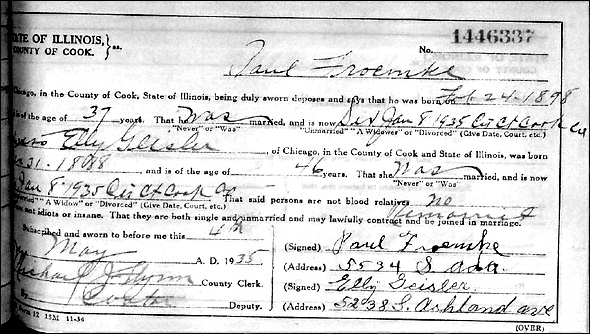 STATE OF ILLINOIS, } ss.
COUNTY OF COOK.
No. 1446337
Paul Froemke
Chicago, in the County of Cook, State of Illinois, being duly sworn deposes and says that he was born on Feb 24-1898
is of the age of 37 years. That he was married, and is now Div Jan 8 1935 Cir Ct Cook Co
"Never" or "Was" "Unmarried" "A Widower" or "Divorced" (Give Date, Court, etc.)
Elly Geisler, of Chicago, in the County of Cook and State of Illinois, was born
and is of the age of 46 years. That she was married, and is now
"Never" or "Was"
Jan 8 1935 Cir Ct Cook Co That said persons are not blood relatives no
"A Widow" or "Divorced" (Give Date, Court, etc.)
not idiots or insane. That they are both single and unmarried and may lawfully contract and be joined in marriage.
Subscribed and sworn to before me this 4th
May A. D. 1935
(Signed) Paul Froemke
Michael J. Flynn County Clerk.
(Address) 5534 S. Ada.
(Signed) Elly Geisler
By Deputy.
(Address) 5238 S. Ashland ave
Form 12 15M 11-36
(OVER)